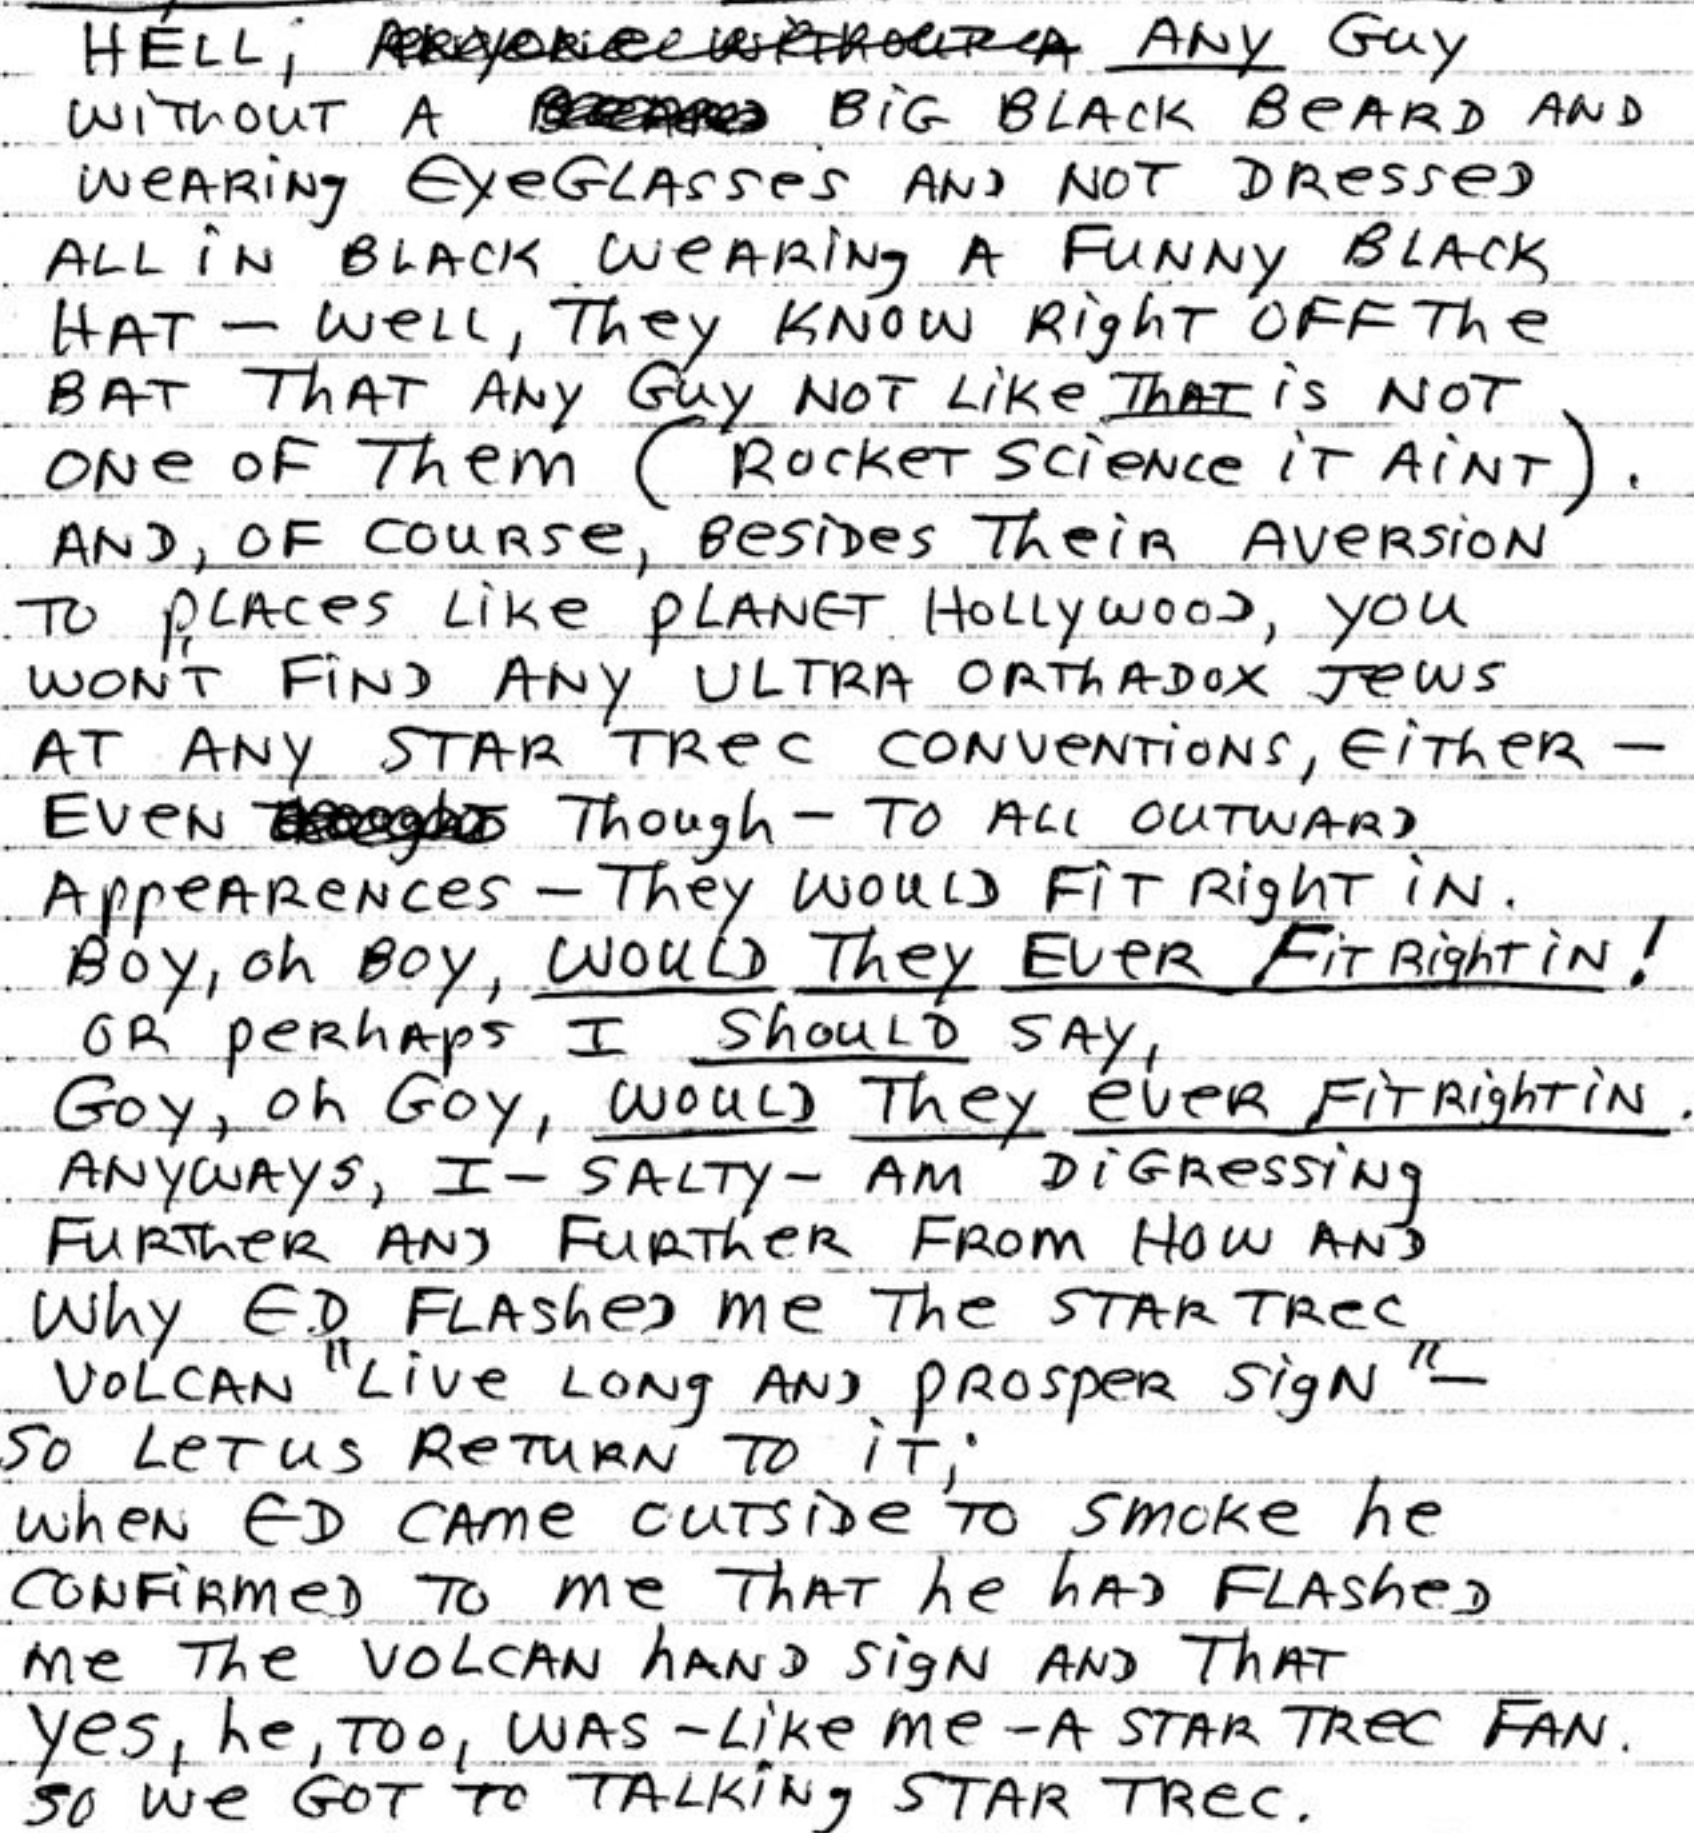 HELL, ANY GUY
WITHOUT A BIG BLACK BEARD AND
WEARING EYEGLASSES AND NOT DRESSED
ALL IN BLACK WEARING A FUNNY BLACK
HAT – WELL, THEY KNOW RIGHT OFF THE
BAT THAT ANY GUY NOT LIKE THAT IS NOT
ONE OF THEM (ROCKET SCIENCE IT AINT).
AND, OF COURSE, BESIDES THEIR AVERSION
TO PLACES LIKE PLANET HOLLYWOOD, YOU
WON'T FIND ANY ULTRA ORTHADOX JEWS
AT ANY STAR TREC CONVENTIONS, EITHER –
EVEN THOUGH – TO ALL OUTWARD
APPEARENCES – THEY WOULD FIT RIGHT IN.
BOY, OH BOY, WOULD THEY EVER FIT RIGHT IN!
OR PERHAPS I SHOULD SAY,
GOY, OH GOY, WOULD THEY EVER FIT RIGHT IN.
ANYWAYS, I – SALTY – AM DIGRESSING
FURTHER AND FURTHER FROM HOW AND
WHY ED FLASHED ME THE STAR TREC
VOLCAN "LIVE LONG AND PROSPER SIGN" –
SO LET US RETURN TO IT;
WHEN ED CAME OUTSIDE TO SMOKE HE
CONFIRMED TO ME THAT HE HAD FLASHED
ME THE VOLCAN HAND SIGN AND THAT
YES, HE, TOO, WAS – LIKE ME – A STAR TREC FAN.
SO WE GOT TO TALKING STAR TREC.